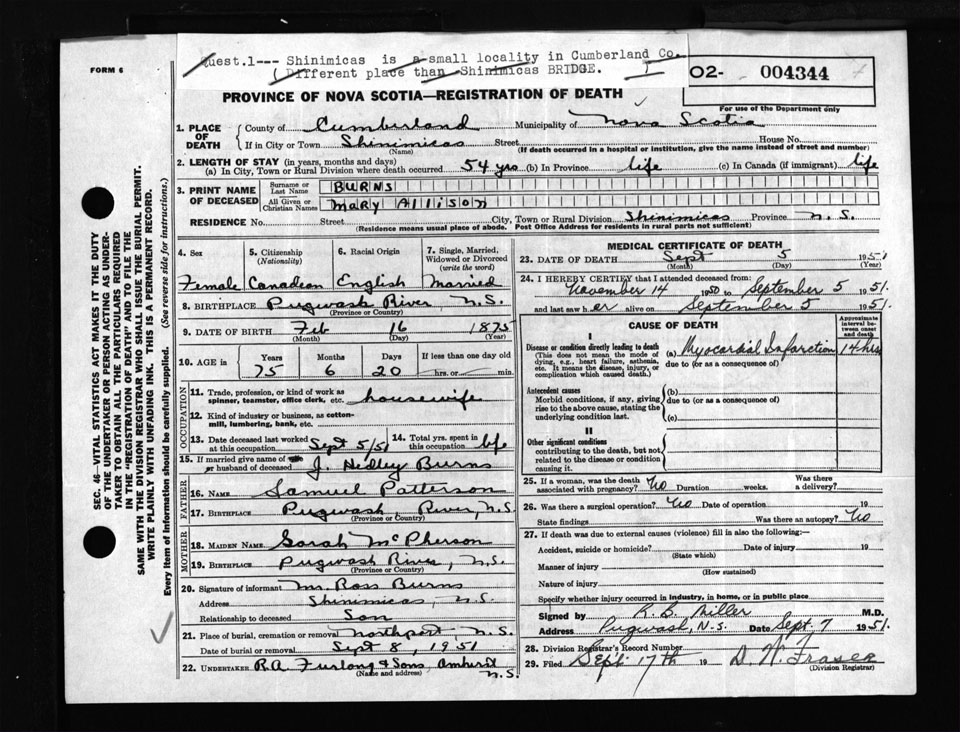 FORM 6
Quest.1--- Shinimicas is a small locality in Cumberland Co.
( Different place than Shinimicas BRIDGE.
O2- 004344
For use of the Department only
PROVINCE OF NOVA SCOTIA—REGISTRATION OF DEATH
1. PLACE OF DEATH { County of Cumberland Municipality of Nova Scotia
If in City or Town Shinimicas Street House No.
(Name) (If death occurred in a hospital or institution, give the name instead of street and number)
2. LENGTH OF STAY (in years, months and days)
(a) In City, Town or Rural Division where death occurred 54 yrs (b) In Province life (c) In Canada (if immigrant) life
3. PRINT NAME OF DECEASED { Surname or Last Name BURNS
All Given or Christian Names Mary Allison
RESIDENCE No. Street City, Town or Rural Division Shinimicas Province N.S.
(Residence means usual place of abode. Post Office Address for residents in rural parts not sufficient)
4. Sex 5. Citizenship (Nationality) 6. Racial Origin 7. Single, Married, Widowed or Divorced (write the word)
Female Canadean English Married
8. BIRTHPLACE Pugwash River N.S.
(Province or Country)
9. DATE OF BIRTH Feb 16 1875
(Month) (Day) (Year)
10. AGE IN Years Months Days If less than one day old
75 6 20 hrs. or min.
OCCUPATION
11. Trade, profession, or kind of work as spinner, teamster, office clerk, etc. housewife
12. Kind of industry or business, as cotton-mill, lumbering, bank, etc.
13. Date deceased last worked at this occupation Sept 5/51 14. Total yrs. spent in this occupation life
15. If married give name of
or husband of deceased J. Hedley Burns
FATHER
16. NAME Samuel Patterson
17. BIRTHPLACE Pugwash River, N.S.
(Province or Country)
MOTHER
18. MAIDEN NAME Sarah McPherson
19. BIRTHPLACE Pugwash River, N.S.
(Province or Country)
20. Signature of informant M. Ross Burns
Address Shinimicas, N.S.
Relationship to deceased Son
21. Place of burial, cremation or removal Northport, N.S.
Date of burial or removal Sept 8, 1951
22. UNDERTAKER R.A. Furlong & Sons, Amherst N.S.
(Name and address)
MEDICAL CERTIFICATE OF DEATH
23. DATE OF DEATH Sept 5 1951
(Month) (Day) (Year)
24. I HEREBY CERTIFY that I attended deceased from:
November 14 1950 to September 5 1951
and last saw h er alive on September 5 1951.
CAUSE OF DEATH
Approximate interval between onset and death
I
Disease or condition directly leading to death (a) Myocardial Infarction 14 hrs
(This does not mean the mode of dying, e.g., heart failure, asthenia, etc. It means the disease, injury, or complication which caused death.)
due to (or as a consequence of)
Antecedent causes (b)
Morbid conditions, if any, giving rise to the above cause, stating the underlying condition last.
due to (or as a consequence of)
(c)
II
Other significant conditions
contributing to the death, but not related to the disease or condition causing it.
25. If a woman, was the death associated with pregnancy? No Duration weeks. Was there a delivery?
26. Was there a surgical operation? No Date of operation 19
State findings Was there an autopsy? No
27. If death was due to external causes (violence) fill in also the following:—
Accident, suicide or homicide? Date of injury 19
(State which)
Manner of injury
(How sustained)
Nature of injury
Specify whether injury occurred in industry, in home, or in public place
Signed by R. B. Miller M.D.
Address Pugwash, N.S. Date Sept. 7 1951.
28. Division Registrar's Record Number
29. Filed Sept. 17th 19 D. W. Fraser
(Division Registrar)
SEC. 46—VITAL STATISTICS ACT MAKES IT THE DUTY
OF THE UNDERTAKER OR PERSON ACTING AS UNDER-
TAKER TO OBTAIN ALL THE PARTICULARS REQUIRED
IN THE "REGISTRATION OF DEATH" AND TO FILE THE
SAME WITH THE DIVISION REGISTRAR WHO SHALL ISSUE THE BURIAL PERMIT.
WRITE PLAINLY WITH UNFADING INK. THIS IS A PERMANENT RECORD.
Every item of information should be carefully supplied. (See reverse side for instructions.)